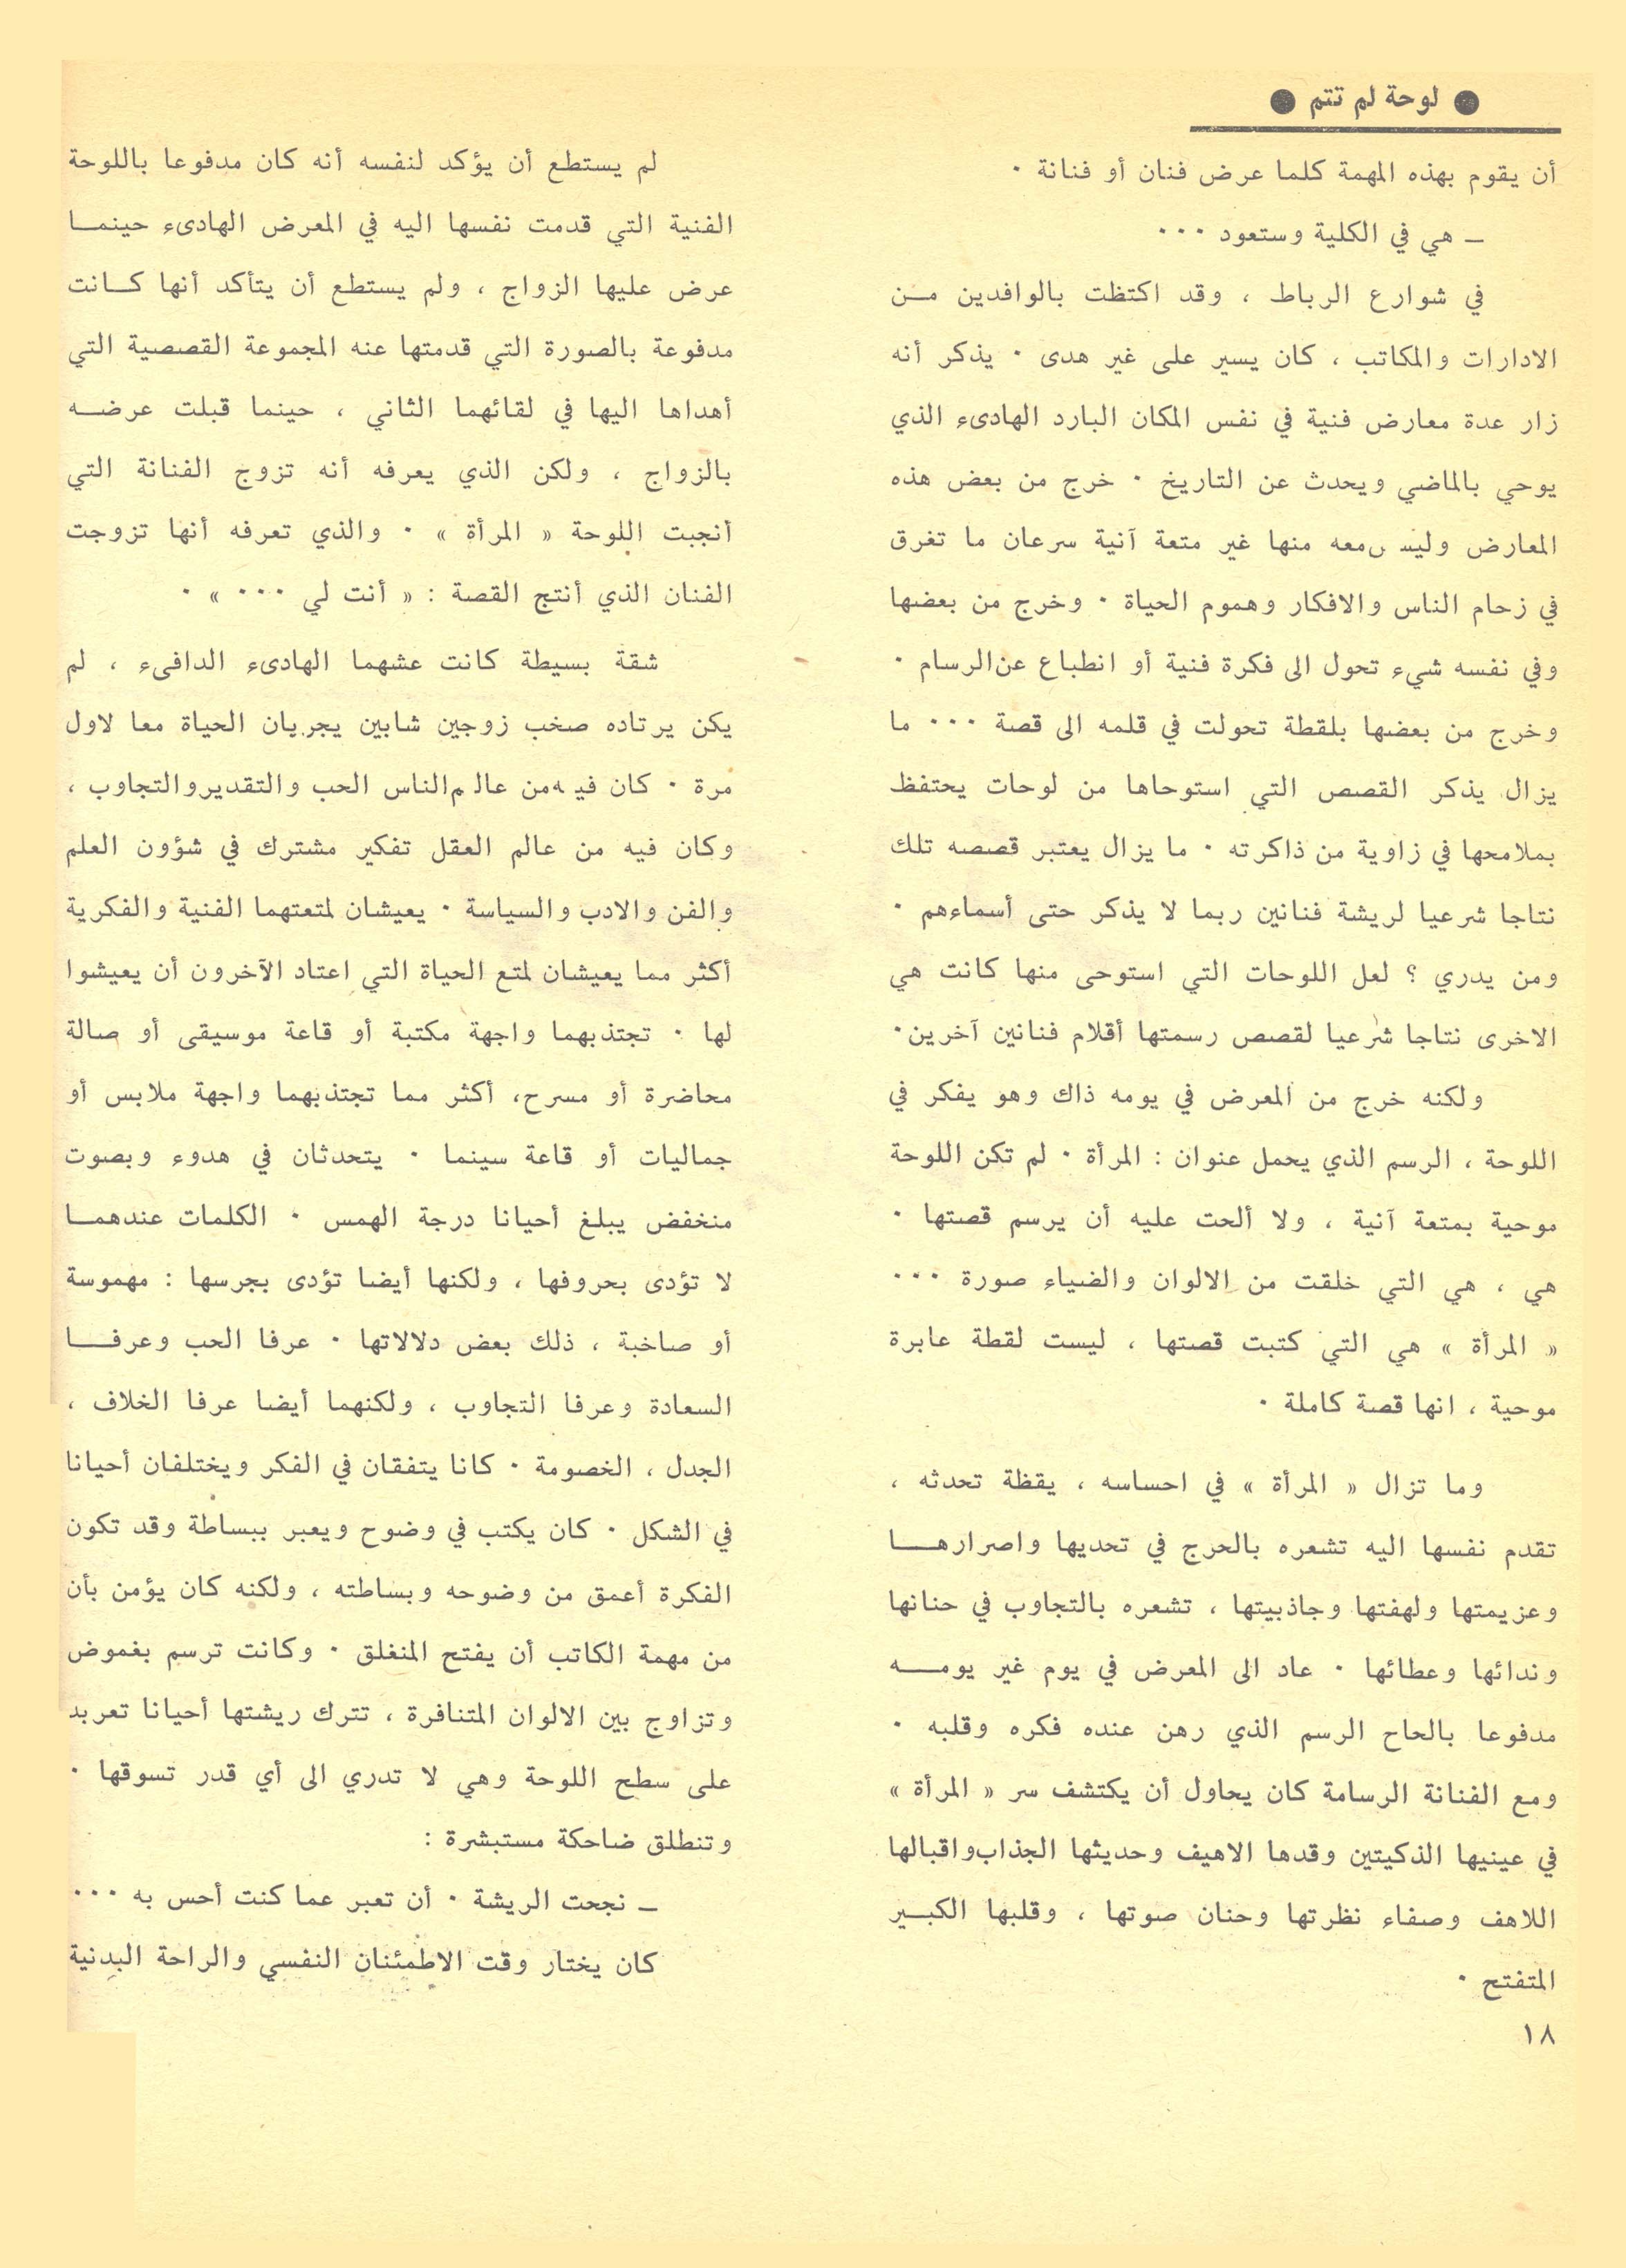 ● لوحة لم تتم ●
أن يقوم بهذه المهمة كلما عرض فنان أو فنانة .
ـ هي في الكلية وستعود ...
في شوارع الرباط ، وقد اكتظت بالوافدين مـن
الادارات والمكاتب ، كان يسير على غير هدى . يذكر أنه
زار عدة معارض فنية في نفس المكان البارد الهادىء الذي
يوحي بالماضي ويحدث عن التاريخ . خرج من بعض هذه
المعارض وليس معه منها غير متعة آنية سرعان ما تغرق
في زحام الناس والافكار وهموم الحياة . وخرج من بعضها
وفي نفسه شيء تحول الى فكرة فنية أو انطباع عن الرسام .
وخرج من بعضها بلقطة تحولت في قلمه الى قصة ... ما
يزال يذكر القصص التي استوحاها من لوحات يحتفظ
بملامحها في زاوية من ذاكرته . ما يزال يعتبر قصصه تلك
نتاجا شرعيا لريشة فنانين ربما لا يذكر حتى أسماءهم .
ومن يدري ؟ لعل اللوحات التي استوحى منها كانت هي
الاخرى نتاجا شرعيا لقصص رسمتها أقلام فنانين آخرين .
ولكنه خرج من المعرض في يومه ذاك وهو يفكر في
اللوحة ، الرسم الذي يحمل عنوان : المرأة . لم تكن اللوحة
موحية بمتعة آنية ، ولا ألحت عليه أن يرسم قصتها .
هي ، هي التي خلقت من الالوان والضياء صورة ...
« المرأة » هي التي كتبت قصتها ، ليست لقطة عابرة
موحية ، انها قصة كاملة .
وما تزال « المرأة » في احساسه ، يقظة تحدثه ،
تقدم نفسها اليه تشعره بالحرج في تحديها واصرارهــا
وعزيمتها ولهفتها وجاذبيتها ، تشعره بالتجاوب في حنانها
وندائها وعطائها . عاد الى المعرض في يوم غير يومــه
مدفوعا بالحاح الرسم الذي رهن عنده فكره وقلبه .
ومع الفنانة الرسامة كان يحاول أن يكتشف سر « المرأة »
في عينيها الذكيتين وقدها الاهيف وحديثها الجذاب واقبالها
اللاهف وصفاء نظرتها وحنان صوتها ، وقلبها الكبــير
المتفتح .
١٨
لم يستطع أن يؤكد لنفسه أنه كان مدفوعا باللوحة
الفنية التي قدمت نفسها اليه في المعرض الهادىء حينمــا
عرض عليها الزواج ، ولم يستطع أن يتأكد أنها كــانت
مدفوعة بالصورة التي قدمتها عنه المجموعة القصصية التي
أهداها اليها في لقائهما الثاني ، حينما قبلت عرضــه
بالزواج ، ولكن الذي يعرفه أنه تزوج الفنانة التي
أنجبت اللوحة « المرأة » . والذي تعرفه أنها تزوجت
الفنان الذي أنتج القصة : « أنت لي ... » .
شقة بسيطة كانت عشهما الهادىء الدافىء ، لم
يكن يرتاده صخب زوجين شابين يجربان الحياة معا لاول
مرة . كان فيه من عالم الناس الحب والتقدير والتجاوب ،
وكان فيه من عالم العقل تفكير مشترك في شؤون العلم
والفن والادب والسياسة . يعيشان لمتعتهما الفنية والفكرية
أكثر مما يعيشان لمتع الحياة التي اعتاد الآخرون أن يعيشوا
لها . تجتذبهما واجهة مكتبة أو قاعة موسيقى أو صالة
محاضرة أو مسرح، أكثر مما تجتذبهما واجهة ملابس أو
جماليات أو قاعة سينما . يتحدثان في هدوء وبصوت
منخفض يبلغ أحيانا درجة الهمس . الكلمات عندهمــا
لا تؤدى بحروفها ، ولكنها أيضا تؤدى بجرسها : مهموسة
أو صاخبة ، ذلك بعض دلالاتها . عرفا الحب وعرفــا
السعادة وعرفا التجاوب ، ولكنهما أيضا عرفا الخلاف ،
الجدل ، الخصومة . كانا يتفقان في الفكر ويختلفان أحيانا
في الشكل . كان يكتب في وضوح ويعبر ببساطة وقد تكون
الفكرة أعمق من وضوحه وبساطته ، ولكنه كان يؤمن بأن
من مهمة الكاتب أن يفتح المنغلق . وكانت ترسم بغموض
وتزاوج بين الالوان المتنافرة ، تترك ريشتها أحيانا تعربد
على سطح اللوحة وهي لا تدري الى أي قدر تسوقها .
وتنطلق ضاحكة مستبشرة :
ـ نجحت الريشة . أن تعبر عما كنت أحس به ...
كان يختار وقت الاطمئنان النفسي والراحة البدنية